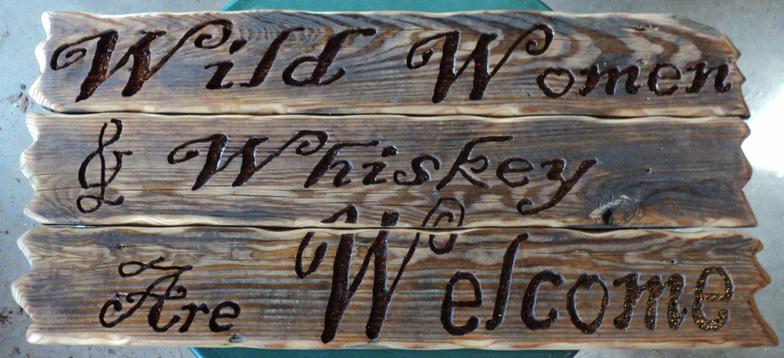 Wild Women
& Whiskey
Are Welcome